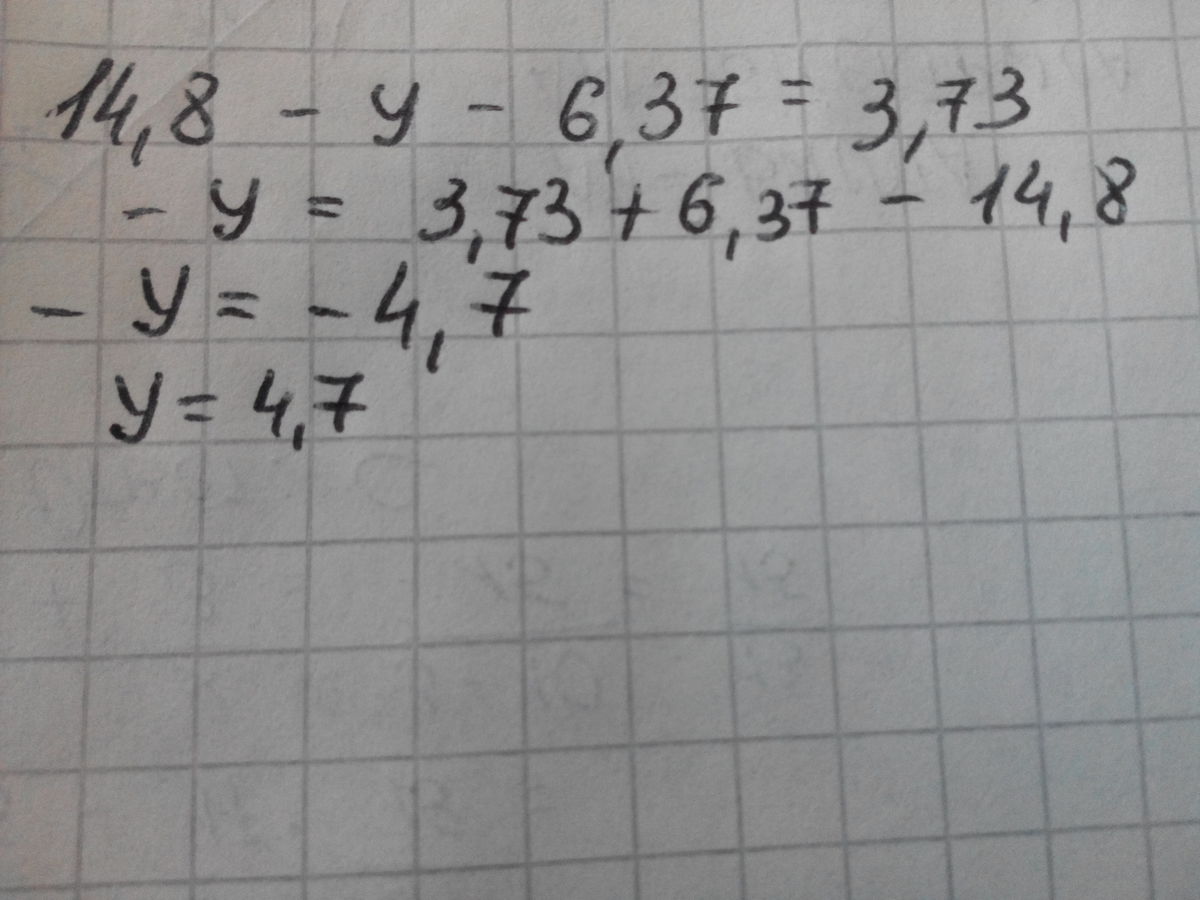 14,8 - y - 6,37 = 3,73
- y = 3,73 + 6,37 - 14,8
- y = - 4,7
y = 4,7